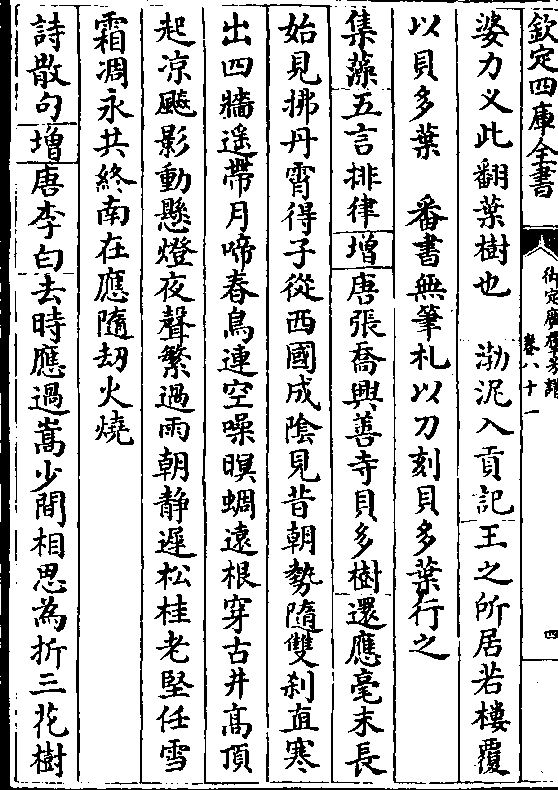 欽定四庫全書
御定廣羣芳譜
卷八十一
四
婆力义此翻葉樹也　渤泥入貢記王之所居若樓覆
以貝多葉　番書無筆札以刀刻貝多葉行之
集藻五言排律增唐張喬興善寺貝多樹還應毫末長
始見拂丹霄得子從西國成陰見昔朝勢隨雙刹直寒
出四牆遥帶月啼春鳥連空噪暝蜩遠根穿古井髙頂
起凉飈影動懸燈夜聲繁過雨朝静遲松桂老堅任雪
霜凋永共終南在應隨刼火燒
詩散句增唐李白去時應過嵩少間相思為折三花樹